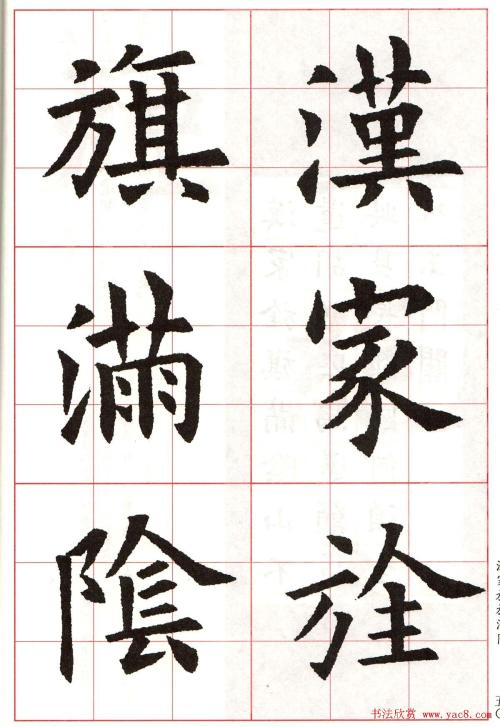 漢家旌
旗滿陰
书法欣赏 www.yac8.com